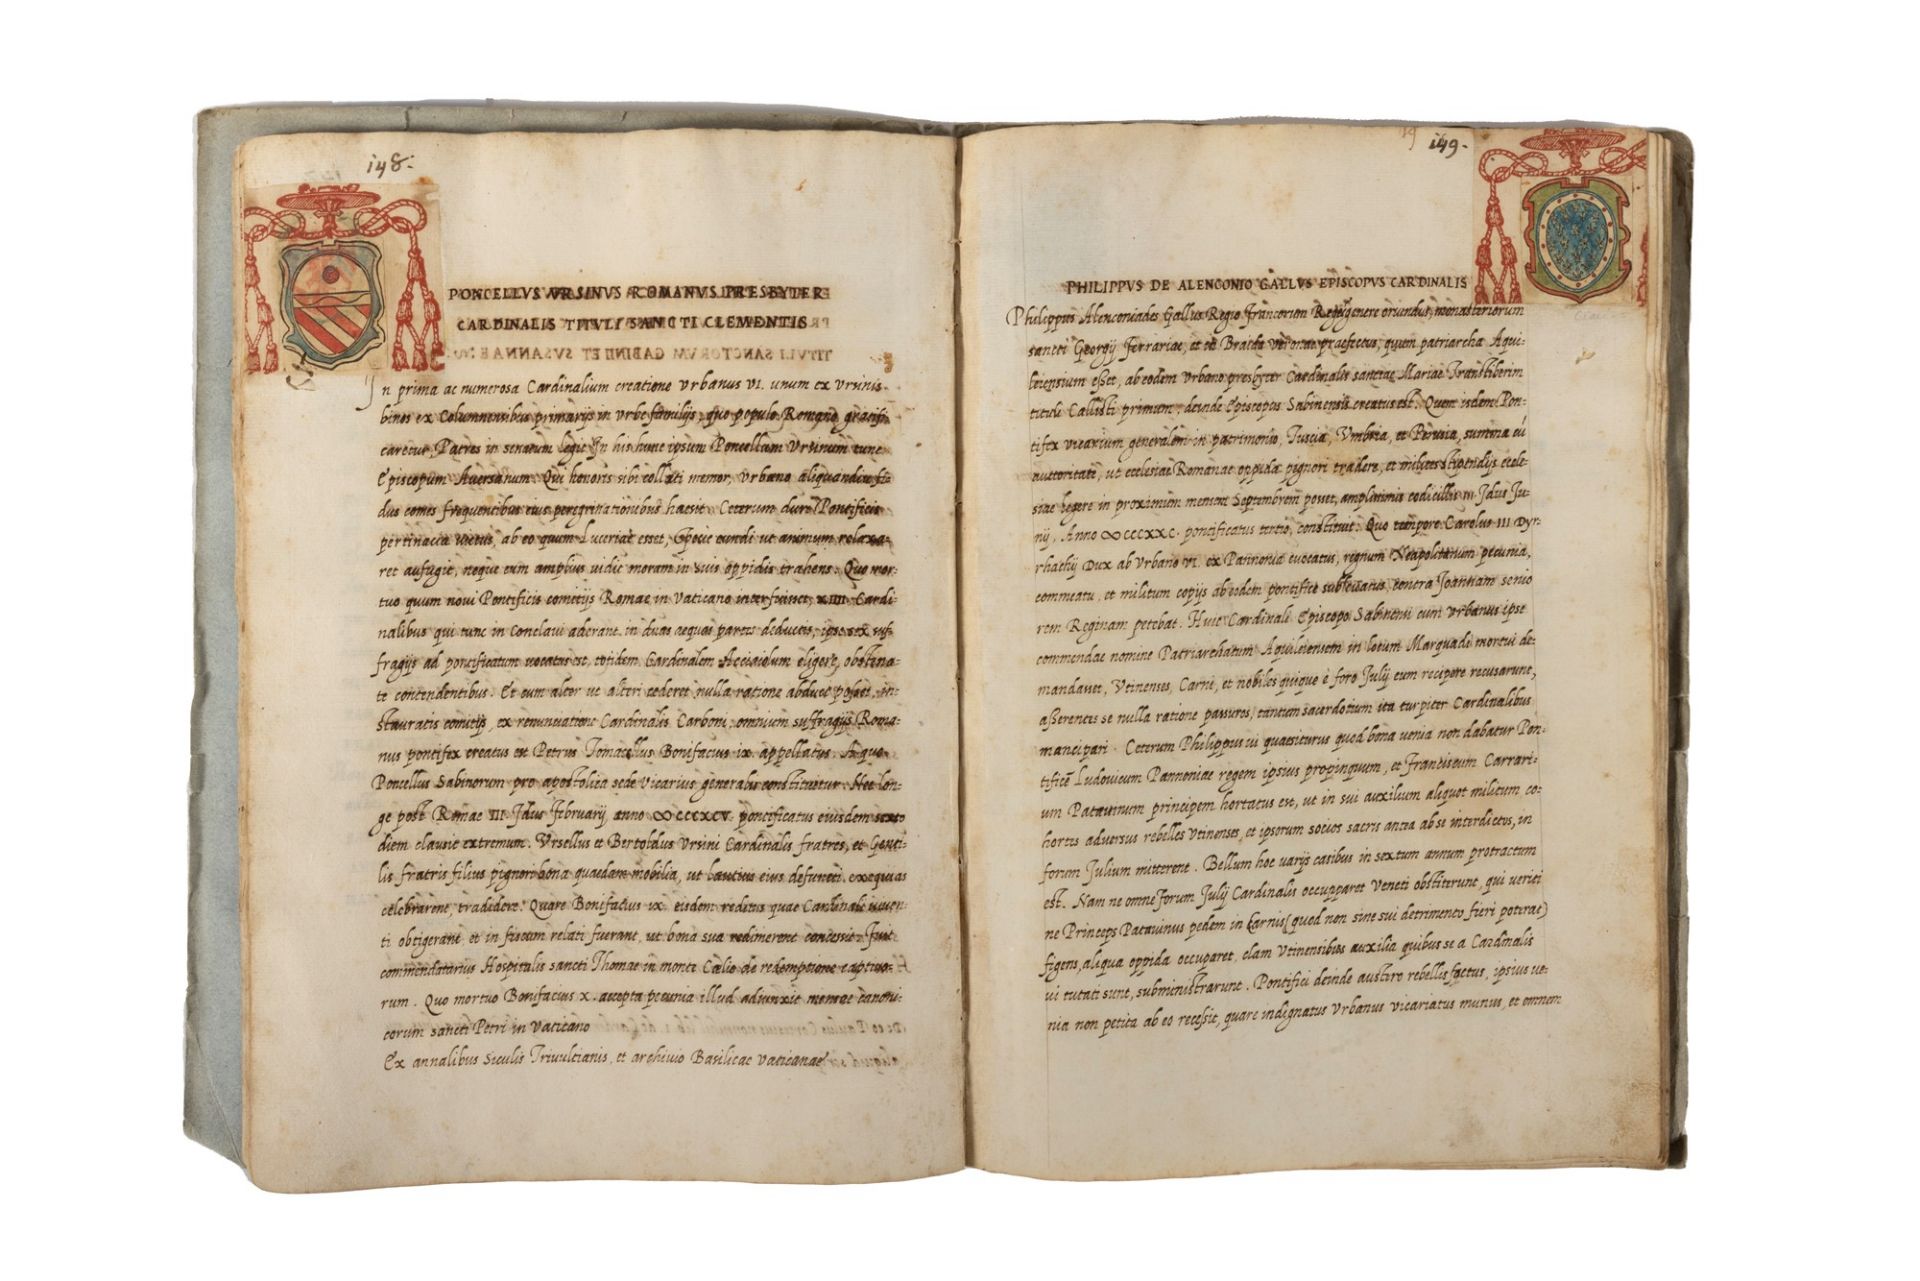 148.
PONCELLVS VRSINVS ROMANVS PRESBYTER
CARDINALIS TITVLI SANCTI CLEMENTIS
In prima ac numerosa Cardinalium creatione Vrbanus VI. unum ex Vrsinis
binos ex Columnensibus primarijs in urbe familijs, quo populo Romano gratifi-
caretur, Patres in senatum legit. In his hunc ipsum Poncellum Vrsinum tunc
Episcopum Auersanum. Qui honoris sibi collati memor, Vrbano aliquandiu fi-
dus comes frequentibus eius peregrinationibus haesit. Ceterum dure Pontificis
pertinacia victus, ab eo quum Luceriae esset, specie eundi ut animum relaxa-
ret aufugit, neque eum amplius vidit moram in suis oppidis trahens. Quo mor-
tuo quum noui Pontificis comitijs Romae in Vaticano interfuisset, XIIII Cardi-
nalibus qui tunc in Conclaui aderant in duas aequas partes deductis, ipse sex suf-
fragijs ad pontificatum vocatus est, totidem Cardinalem Acciaiolum eligere, obstina-
te contendentibus. Et cum alter ut alteri cederet nulla ratione abduci posset, in-
stauratis comitijs, ex renunciatione Cardinalis Carboni, omnium suffragijs Roma-
nus pontifex creatus est Petrus Tomacellus Bonifacius ix. appellatus. A quo
Poncellus Sabinorum pro apostolica sede Vicarius generalis constituitur. Nec lon-
ge post Romae III. Idus Februarij anno ∞CCCXCV. pontificatus eiusdem sexto
diem clausit extremum. Vrsellus et Bertoldus Vrsini Cardinalis fratres, et Genti-
lis fratris filius pignori bona quaedam mobilia, ut lautius eius defuncti exequias
celebrarent, tradidere. Quare Bonifacius ix. eisdem reditus quae Cardinali viuen-
ti obtigerant, et in fiscum relati fuerant, ut bona sua redimerent concessit. Fuit
commendatarius Hospitalis sancti Thomae in monte Caelio de redemptione captiuo-
rum. Quo mortuo Bonifacius x. accepta pecunia illud adiunxit mensae canoni-
corum sancti Petri in Vaticano
Ex annalibus Siculis Triuultianis, et archiuio Basilicae Vaticanae
19 149.
PHILIPPVS DE ALENCONIO GALLVS EPISCOPVS CARDINALIS
Philippus Alenconiades Gallus Regio francorum Regum genere oriundus, monasteriorum
sancti Georgij Ferrariae, et in Braida Veronae praefectus, quum patriarcha Aqui-
leiensium esset, ab eodem Vrbano presbyter Cardinalis sanctae Mariae Transtiberim
tituli Callisti primum, deinde Episcopus Sabinensis creatus est. Quem isdem Pon-
tifex vicarium generalem in patrimonio, Tuscia, Vmbria, et Perusia, summa cu
auctoritate, ut ecclesiae Romanae oppida pignori tradere, et milites stipendijs eccle-
siae legere in proximum mensem Septembrem posset, amplissimis codicillis III. Idus Ju-
nij, Anno ∞CCCXXC. pontificatus tertio, constituit. Quo tempore Carolus III Dyr-
rhachij Dux ab Vrbano VI. ex Pannonia euocatus, regnum Neapolitanum pecunia,
commeatu, et militum copijs ab eodem pontifice subleuatus, contra Joannam senio
rem Reginam petebat. Huic Cardinali Episcopo Sabinensi cum Vrbanus ipse
commendae nomine Patriarchatum Aquileiensem in locum Marquadi mortui de-
mandasset, Vtinenses, Carni, et nobiles quique è foro Julij eum recipere recusarunt,
asserentes se nulla ratione passuros, tantum sacerdotium ita turpiter Cardinalibus
mancipari. Ceterum Philippus ui quaesiturus quod bona venia non dabatur Pon-
tifice Ludouicum Pannoniae regem ipsius propinquum, et Franciscum Carrari-
um Patauinum principem hortatus est, ut in sui auxilium aliquot militum co-
hortes aduersus rebelles Vtinenses, et ipsorum socios sacris antea ab se interdictos, in
forum Julium mitterent. Bellum hoc varijs casibus in sextum annum protractum
est. Nam ne omne forum Julij Cardinalis occupparet Veneti obstiterunt, qui veriti
ne Princeps Patauinus pedem in Carnis (quod non sine sui detrimento fieri poterat)
figens, aliqua oppida occuparet, clam Vtinensibus auxilia quibus se a Cardinalis
ui tutati sunt, subministrarunt. Pontifici deinde austero rebellis factus, ipsius ve-
nia non petita ab eo recessit, quare indignatus Vrbanus vicariatus munus, et omnem